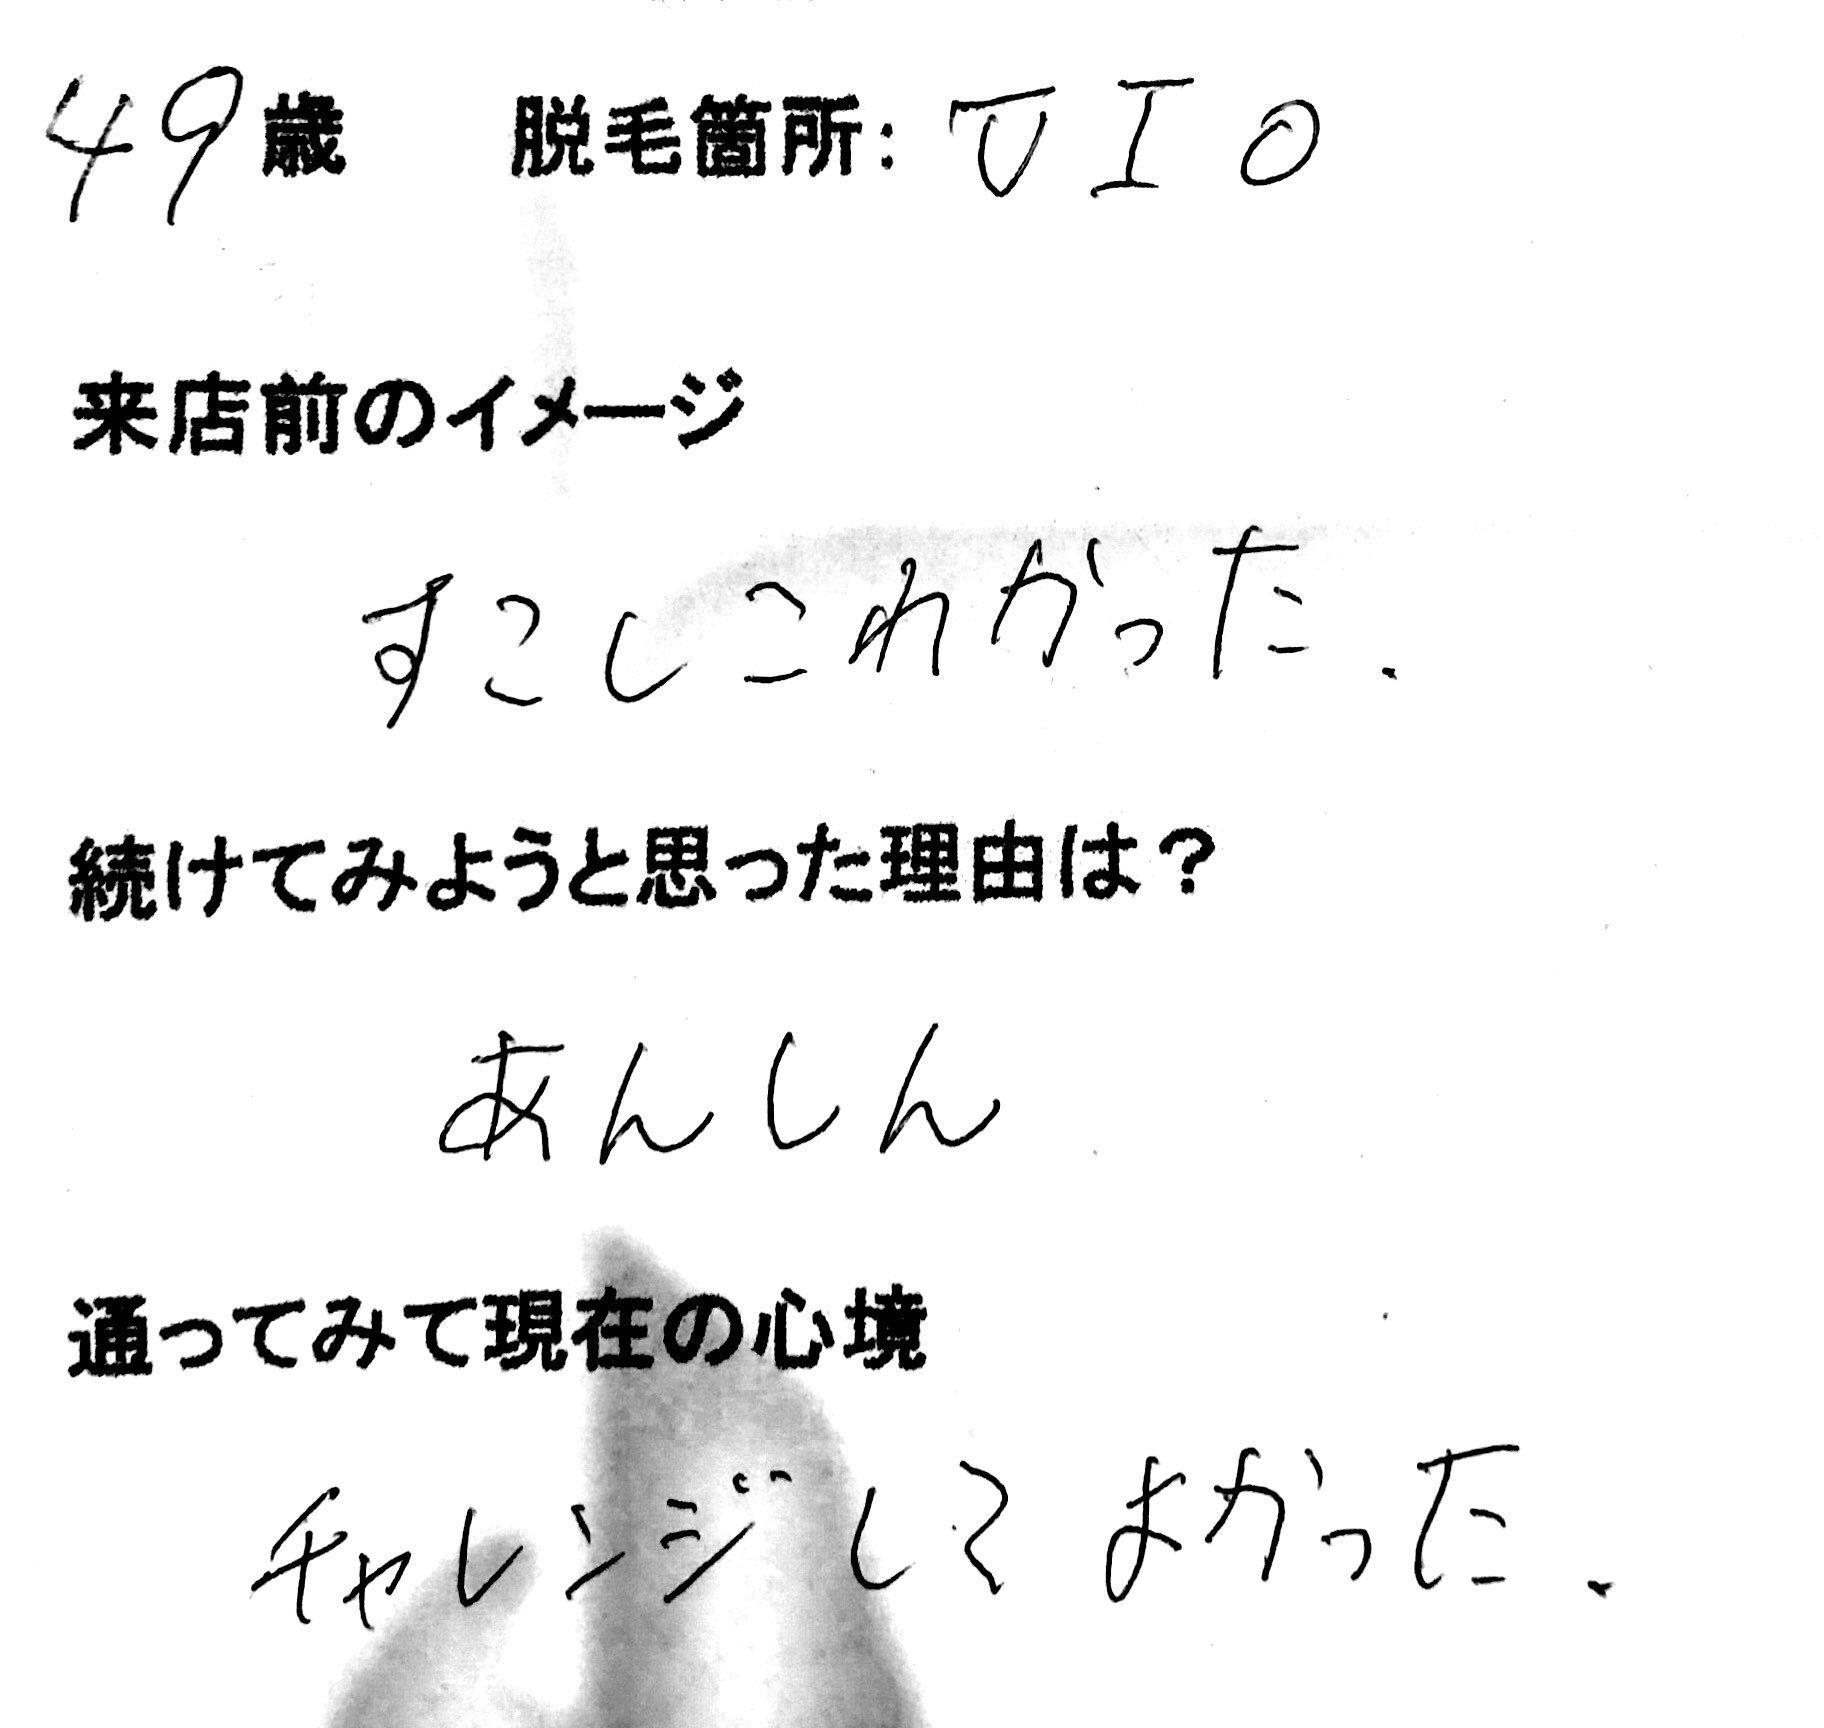 49歳 脱毛箇所: VIO
来店前のイメージ
すこしこわかった.
続けてみようと思った理由は?
あんしん
通ってみて現在の心境
チャレンジしてよかった.